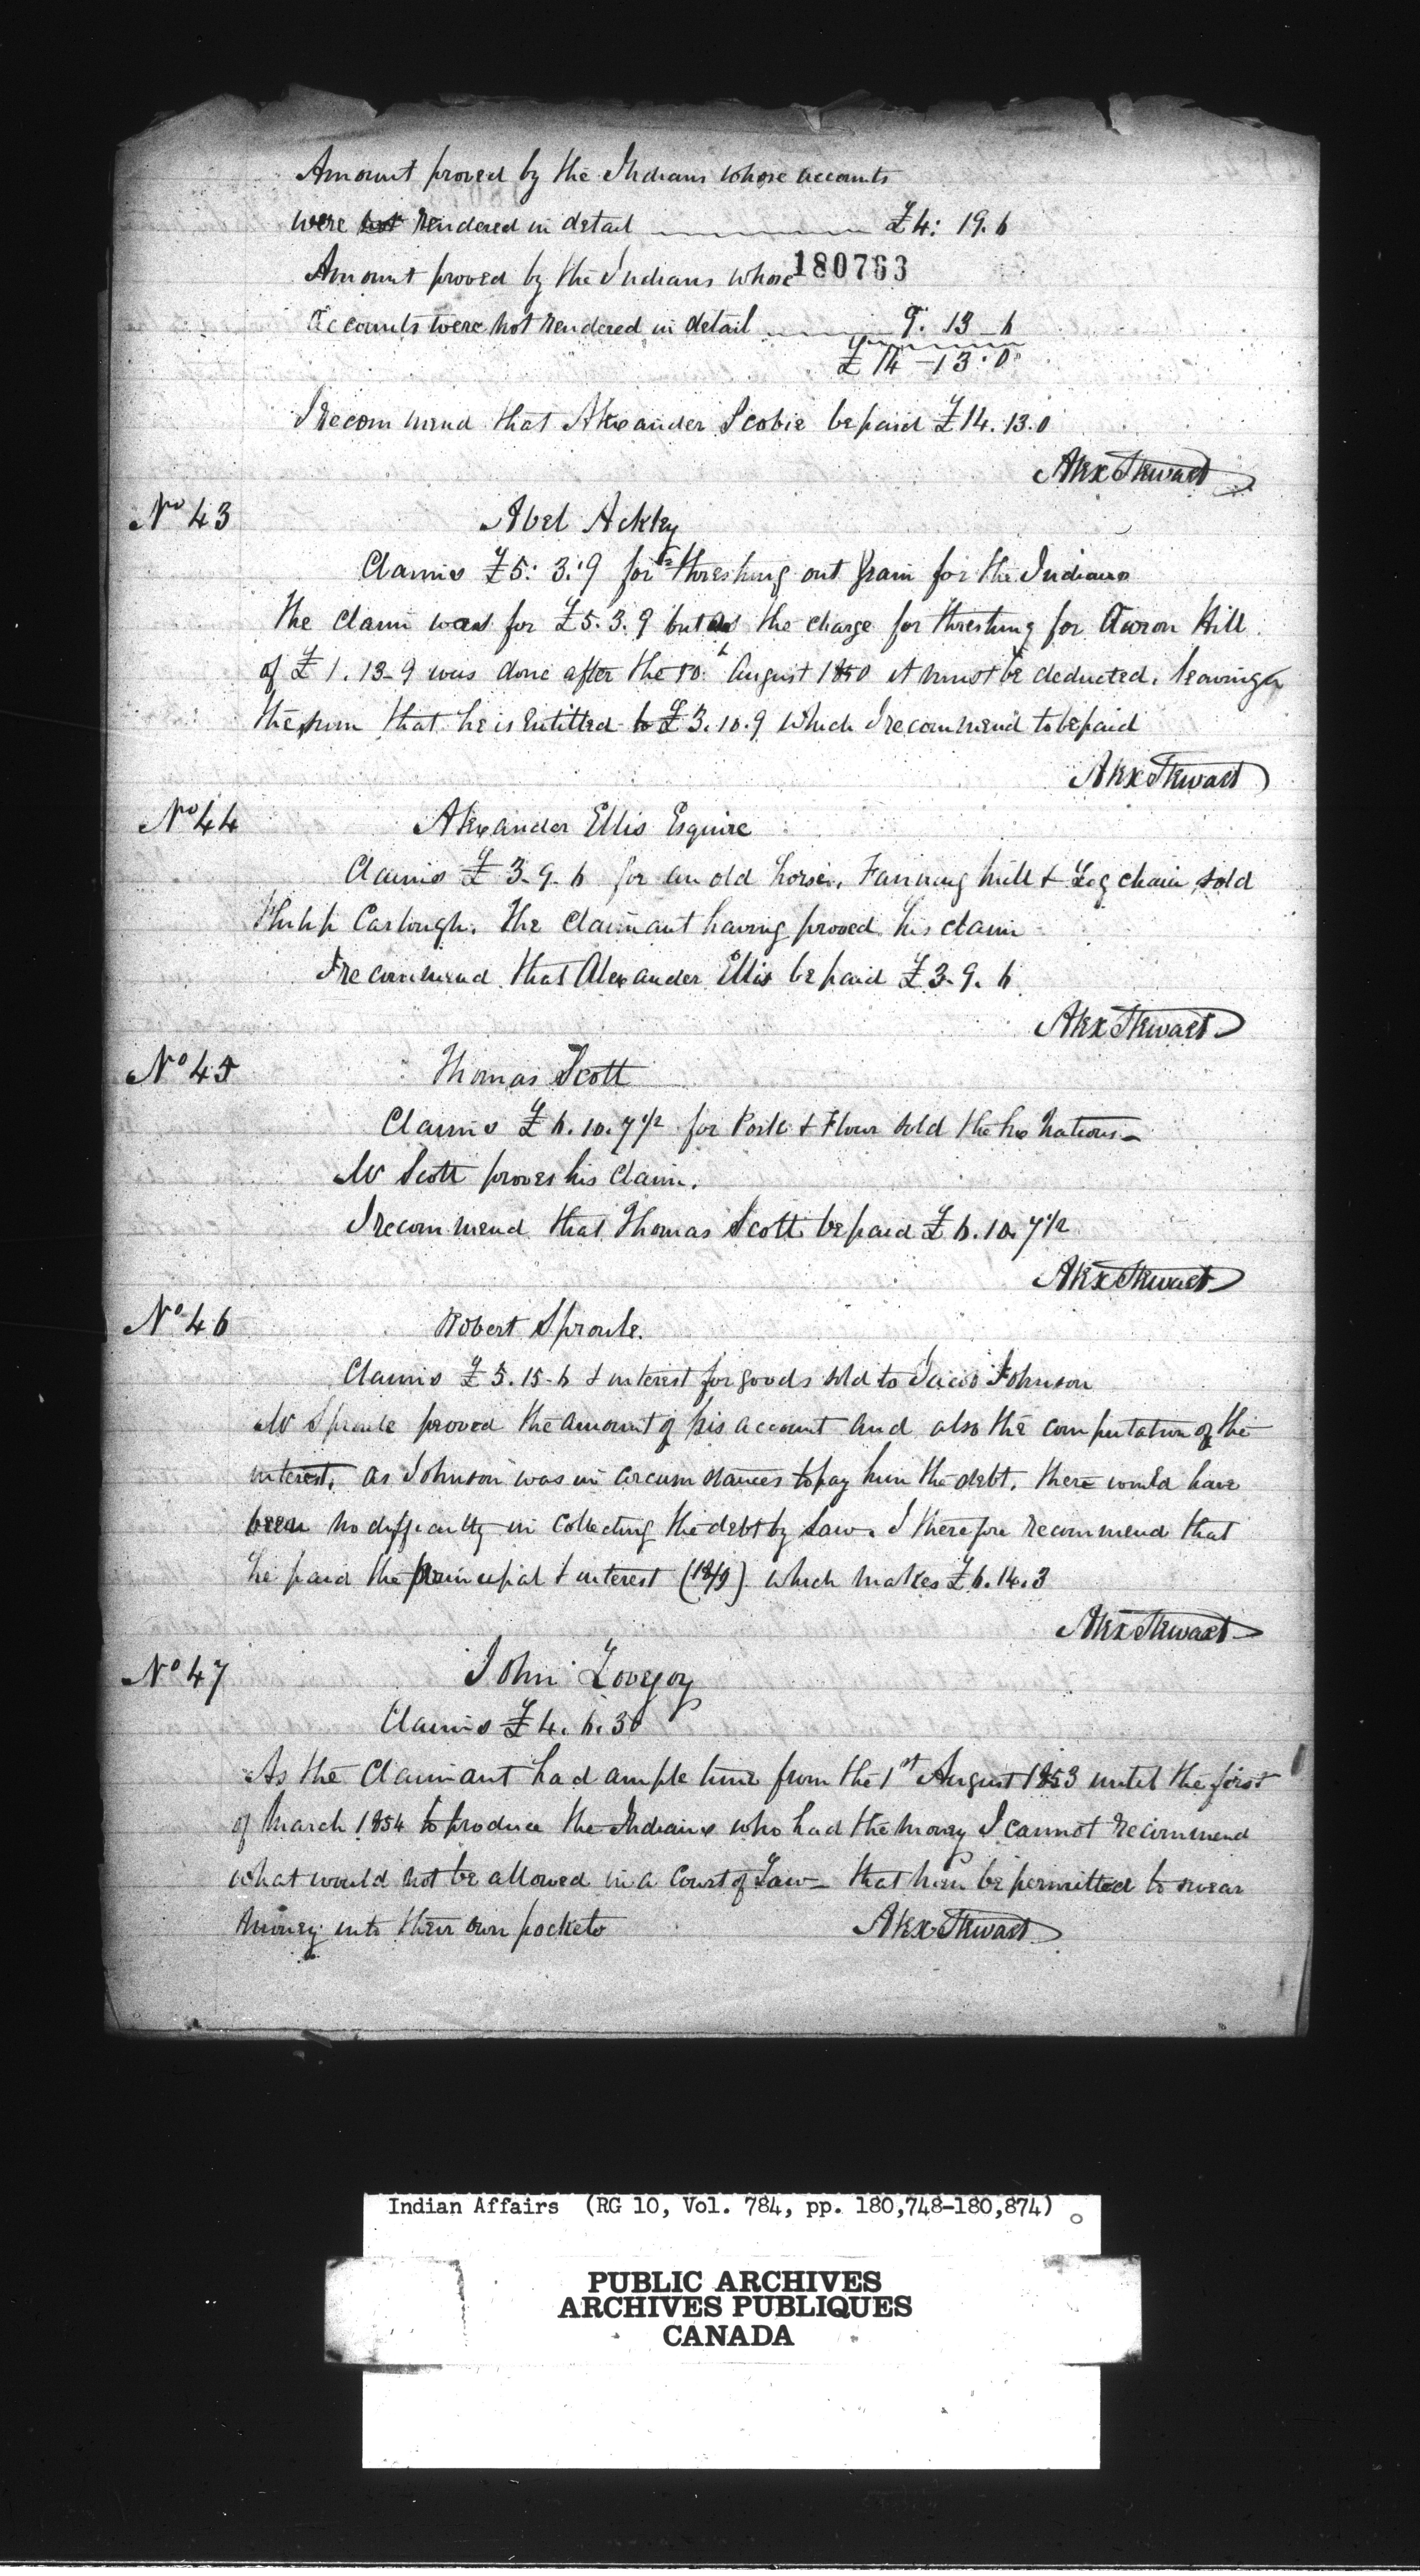 Amount proved by the Indians whose accounts
were not rendered in detail £4: 19. 6
180763
Amount proved by the Indians whose
accounts were not rendered in detail 9. 13 6
£14 - 13 . 0
I recommend that Alexander Scobie be paid £14. 13. 0
Alex Stewart
No 43
Abel Ackley
Claims £5: 3: 9 for threshing out grain for the Indians
The claim was for £5. 3. 9 but as the charge for threshing for Aaron Hill
of £1. 13- 9 was done after the 10th August 1850 it must be deducted. leaving
the sum that he is entitled to £3. 10. 9 which I recommend to be paid
Alex Stewart
No 44
Alexander Ellis Esquire
Claims £3- 9- 6 for an old horse, Fanning mill & Log chain sold
Philip Carlough. The Claimant having proved his claim
I recommend that Alexander Ellis be paid £3- 9. 6
Alex Stewart
No 45
Thomas Scott
Claims £6. 10. 7 1/2 for Pork & Flour sold the Six Nations-
Mr Scott proves his claim.
I recommend that Thomas Scott be paid £6. 10. 7 1/2
Alex Stewart
No 46
Robert Sproule.
Claims £5. 15- 6 & interest for goods sold to Jacob Johnson
Mr Sproule proved the amount of his account and also the computation of the
interest. as Johnson was in circumstances to pay him the debt. there would have
been no difficulty in collecting the debt by Law. I therefore recommend that
he paid the principal & interest (18/9) which makes £6. 14. 3
Alex Stewart
No 47
John Lovejoy
Claims £4. 6. 3
As the Claimant had ample time from the 1st August 1853 until the first
of March 1854 to produce the Indians who had the money I cannot recommend
what would not be allowed in a Court of Law- that men be permitted to swear
money into their own pockets
Alex Stewart
Indian Affairs (RG 10, Vol. 784, pp. 180,748-180,874)
PUBLIC ARCHIVES
ARCHIVES PUBLIQUES
CANADA